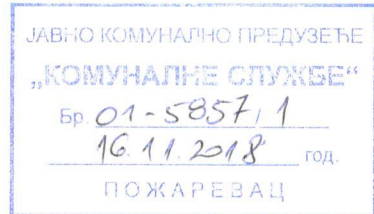 ЈАВНО КОМУНАЛНО ПРЕДУЗЕЋЕ
„КОМУНАЛНЕ СЛУЖБЕ“
Бр. 01-5857/1
16.11.2018 год.
ПОЖАРЕВАЦ